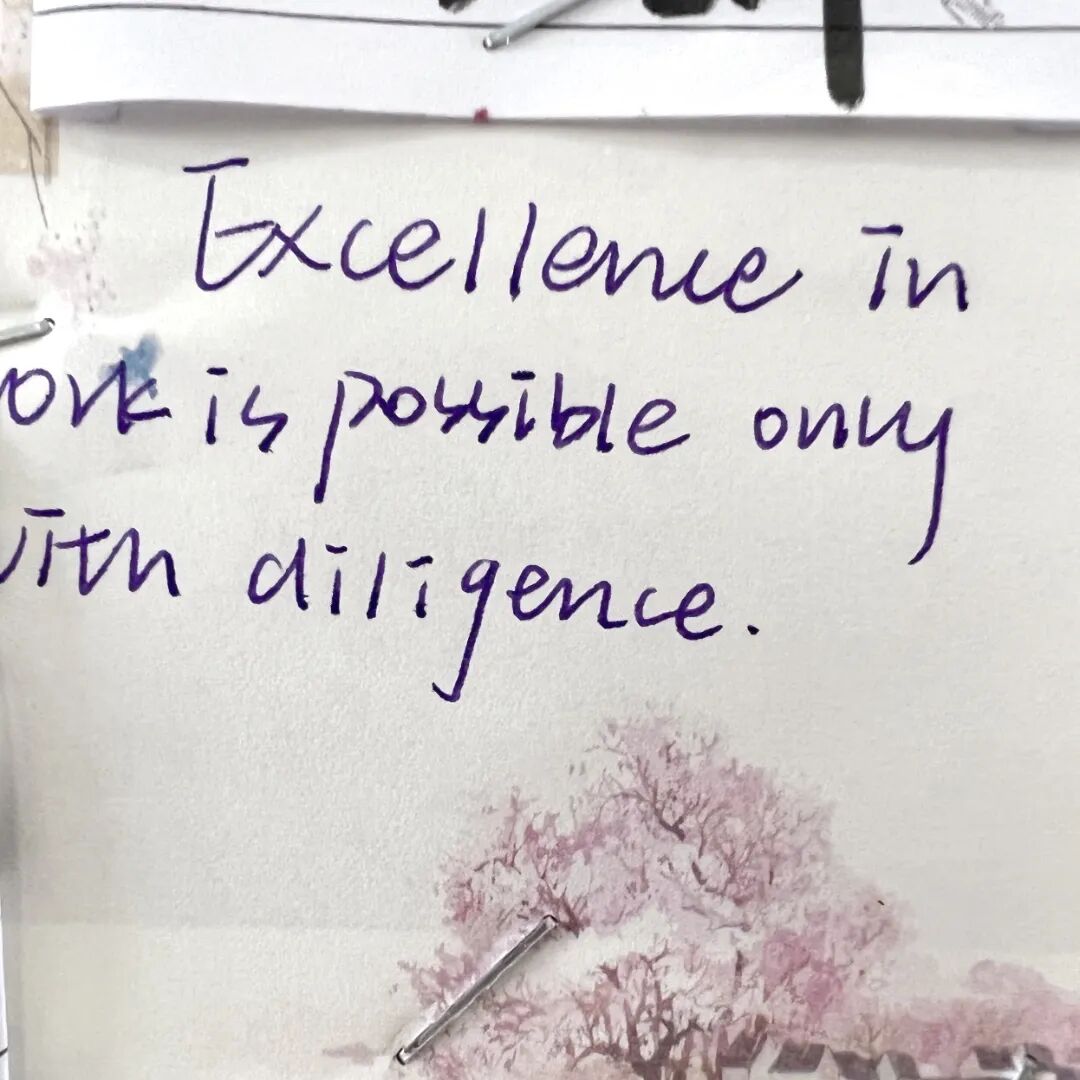 Excellence in
ork is possible only
with diligence.